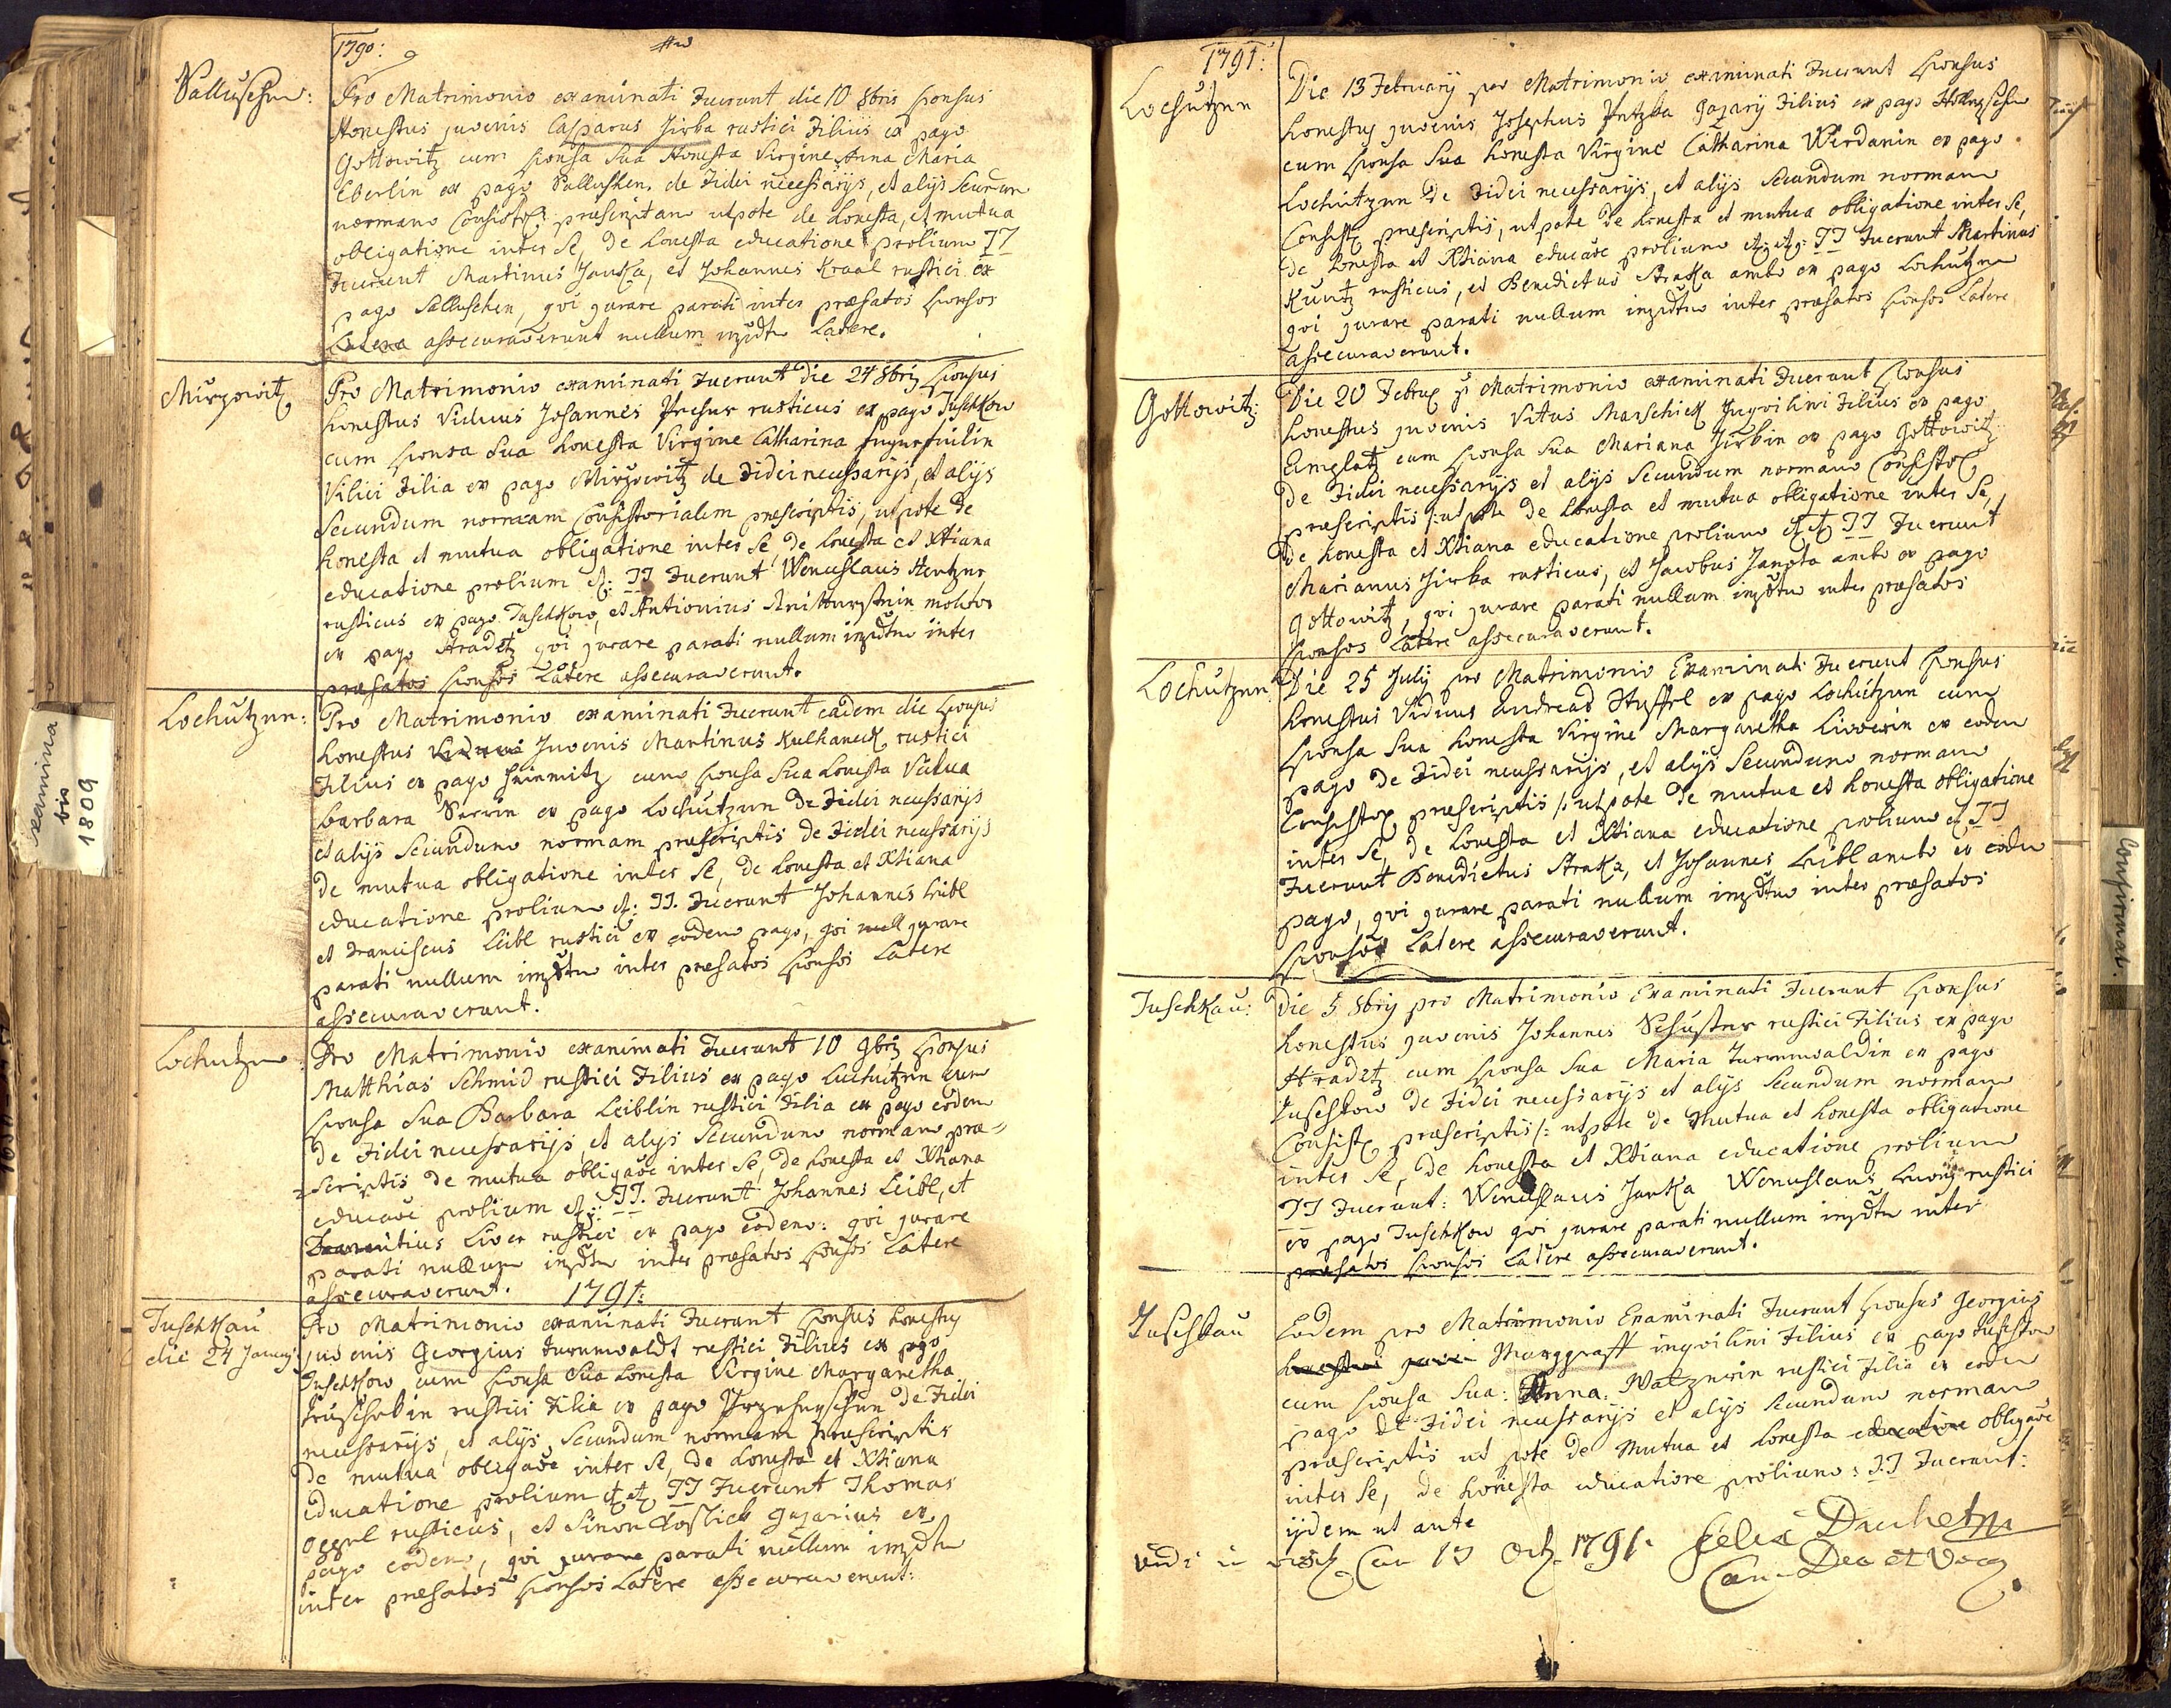 1790:
Sallušchen:
Pro Matrimonio examinati Fuerunt die 10 8bris sponsus
Honestus juvenis Casparus Jirba rustici Filius ex pago
Gottowitz cum sponsa sua Honesta Virgine Anna Maria
Eberlin ex pago Salluschen, de Fidei necessarijs, et alijs secundum
normam Consistor: præscriptam utpote de honesta, et mutua
obligatione inter se, de honesta educatione prolium TT
Fuerunt Martinus Janka, et Johannes Kraal rustici ex
pago Salluschen, qvi jurare parati inter præfatos sponsos
Latere assecuraverunt nullum impdtm Latere.
Mirzowitz
Pro Matrimonio examinati Fuerunt die 24 8brij sponsus
honestus Viduus Johannes rusticus ex pago Tuschkow
cum sponsa sua honesta Virgine Catharina
Vilici Filia ex pago Mirzowitz de Fidei necessarijs, et alijs
Secundum normam Consistorialem præscriptis, utpote de
honesta et mutua obligatione inter se, de honesta et Xtiana
educatione prolium et: TT Fuerunt Wenceslaus Hentzner
rusticus ex pago Tuschkow, et Antonius molitor
ex pago Hradetz qvi jurare parati nullum impdtm inter
præfatos sponsos Latere assecuraverunt.
Lochutzen:
Pro Matrimonio examinati Fuerunt eadem die sponsus
honestus Viduus Juvenis Martinus Kulhaneck rustici
Filius ex pago cum sponsa sua honesta Vidua
Barbara ex pago Lochutzen de Fidei necessarijs
et alijs Secundum normam præscriptis de Fidei necessarijs
de mutua obligatione inter se, de honesta et Xtiana
educatione prolium et: TT. Fuerunt Johannes Leibl
et Franciscus Leibl rustici ex eodem pago, qvi null jurare
parati nullum impdtm inter præfatos sponsos Latere
assecuraverunt.
Lochutzen:
Pro Matrimonio examinati Fuerunt 10 9brij sponsus
Matthias Schmid rustici Filius ex pago Luchutzen cum
sponsa sua Barbara Leiblin rustici Filia ex pago eodem
de Fidei necessarijs, et alijs Secundum normam præ=
=scriptis de mutua obligaoe inter se, de honesta et Xtiana
educaoe prolium et: TT. Fuerunt Johannes Leibl, et
Liver rustici ex pago eodem: qvi jurare
parati nullum impdtm inter præfatos sponsos Latere
assecuraverunt. 1791:
Tuschkau
die 24 Januarij
Pro Matrimonio examinati Fuerunt sponsus honestus
juvenis Georgius Turnwaldt rustici Filius ex pago
Tuschkow cum sponsa sua honesta Virgine Margaretha
rustici Filia ex pago de Fidei
necessarijs, et alijs Secundum normam præscriptis
de mutua obligaoe inter se, de honesta et Xtiana
educatione prolium et et TT Fuerunt Thomas
rusticus, et Simon gazarius ex
pago eodem, qvi jurare parati nullum impdtm
inter præfatos sponsos Latere assecuraverunt:
1791:
Lochutzen
Die 13 February pro Matrimonio examinati Fuerunt sponsus
honestus juvenis Josephus gazary Filius ex pago
cum sponsa sua honesta Virgine Catharina Wirdanin ex pago
Lochutzen de Fidei necessarijs, et alijs secundum normam
Consist: præscriptis, utpote de honesta et mutua obligatione inter se,
de honesta et Xtiana educaoe prolium et et: TT Fuerunt Martinus
Kuntz rusticus, et Benedictus Straka ambo ex pago Lochutzen
qvi jurare parati nullum impdtm inter præfatos sponsos Latere
assecuraverunt.
Gottowitz:
Die 20 Febru: Matrimonio examinati Fuerunt sponsus
honestus juvenis Vitus Marschick Inqvilini Filius ex pago
cum sponsa sua Mariana Jirbin ex pago Gottowitz
de Fidei necessarijs et alijs Secundum normam Consistor:
præscriptis utpote de honesta et mutua obligatione inter se,
de honesta et Xtiana educatione prolium et et TT Fuerunt
Marianus Jirba rusticus, et Jacobus Janota ambo ex pago
Gottowitz, qvi jurare parati nullum impdtm inter præfatos
sponsos Latere assecuraverunt.
Lochutzen:
Die 25 July pro Matrimonio Examinati Fuerunt sponsus
honestus Viduus Andreas ex pago Lochutzen cum
sponsa sua honesta Virgine Margaretha Liverin ex eodem
pago de Fidei necessarijs, et alijs Secundum normam
Consistor: præscriptis /: utpote de mutua et honesta obligatione
inter se, de honesta et Xtiana educatione prolium et TT
Fuerunt Benedictus Straka, et Johannes Leibl ambo ex eodem
pago, qvi jurare parati nullum impdtm inter præfatos
sponsos Latere assecuraverunt.
Tuschkau:
Die 5 8brij pro Matrimonio Examinati Fuerunt sponsus
honestus juvenis Johannes Schuster rustici Filius ex pago
Hradetz cum sponsa sua Maria Turnwaldin ex pago
Tuschkow de Fidei necessarijs et alijs Secundum normam
Consist: præscriptis /: utpote de Mutua et honesta obligatione
inter se, de honesta et Xtiana educatione prolium
TT Fuerunt: Wenceslaus Janka Wenceslaus rustici
ex pago Tuschkow qvi jurare parati nullum impdtm inter
præfatos sponsos Latere assecuraverunt.
Tuschkau
Eodem pro Matrimonio Examinati Fuerunt sponsus Georgius
honestus juveni Marggraff inqvilini Filius ex pago Tuschkow
cum sponsa sua: Anna: rustici Filia ex eodem
pago de Fidei necessarijs et alijs secundum normam
præscriptis ut pote de Mutua et honesta educatione obligaoe
inter se, de honesta educatione prolium: TT Fuerunt:
ijdem ut ante
Vidi in Can 13 Oct. 1791. Felix
Can. Dec et
Examina
bis
1809